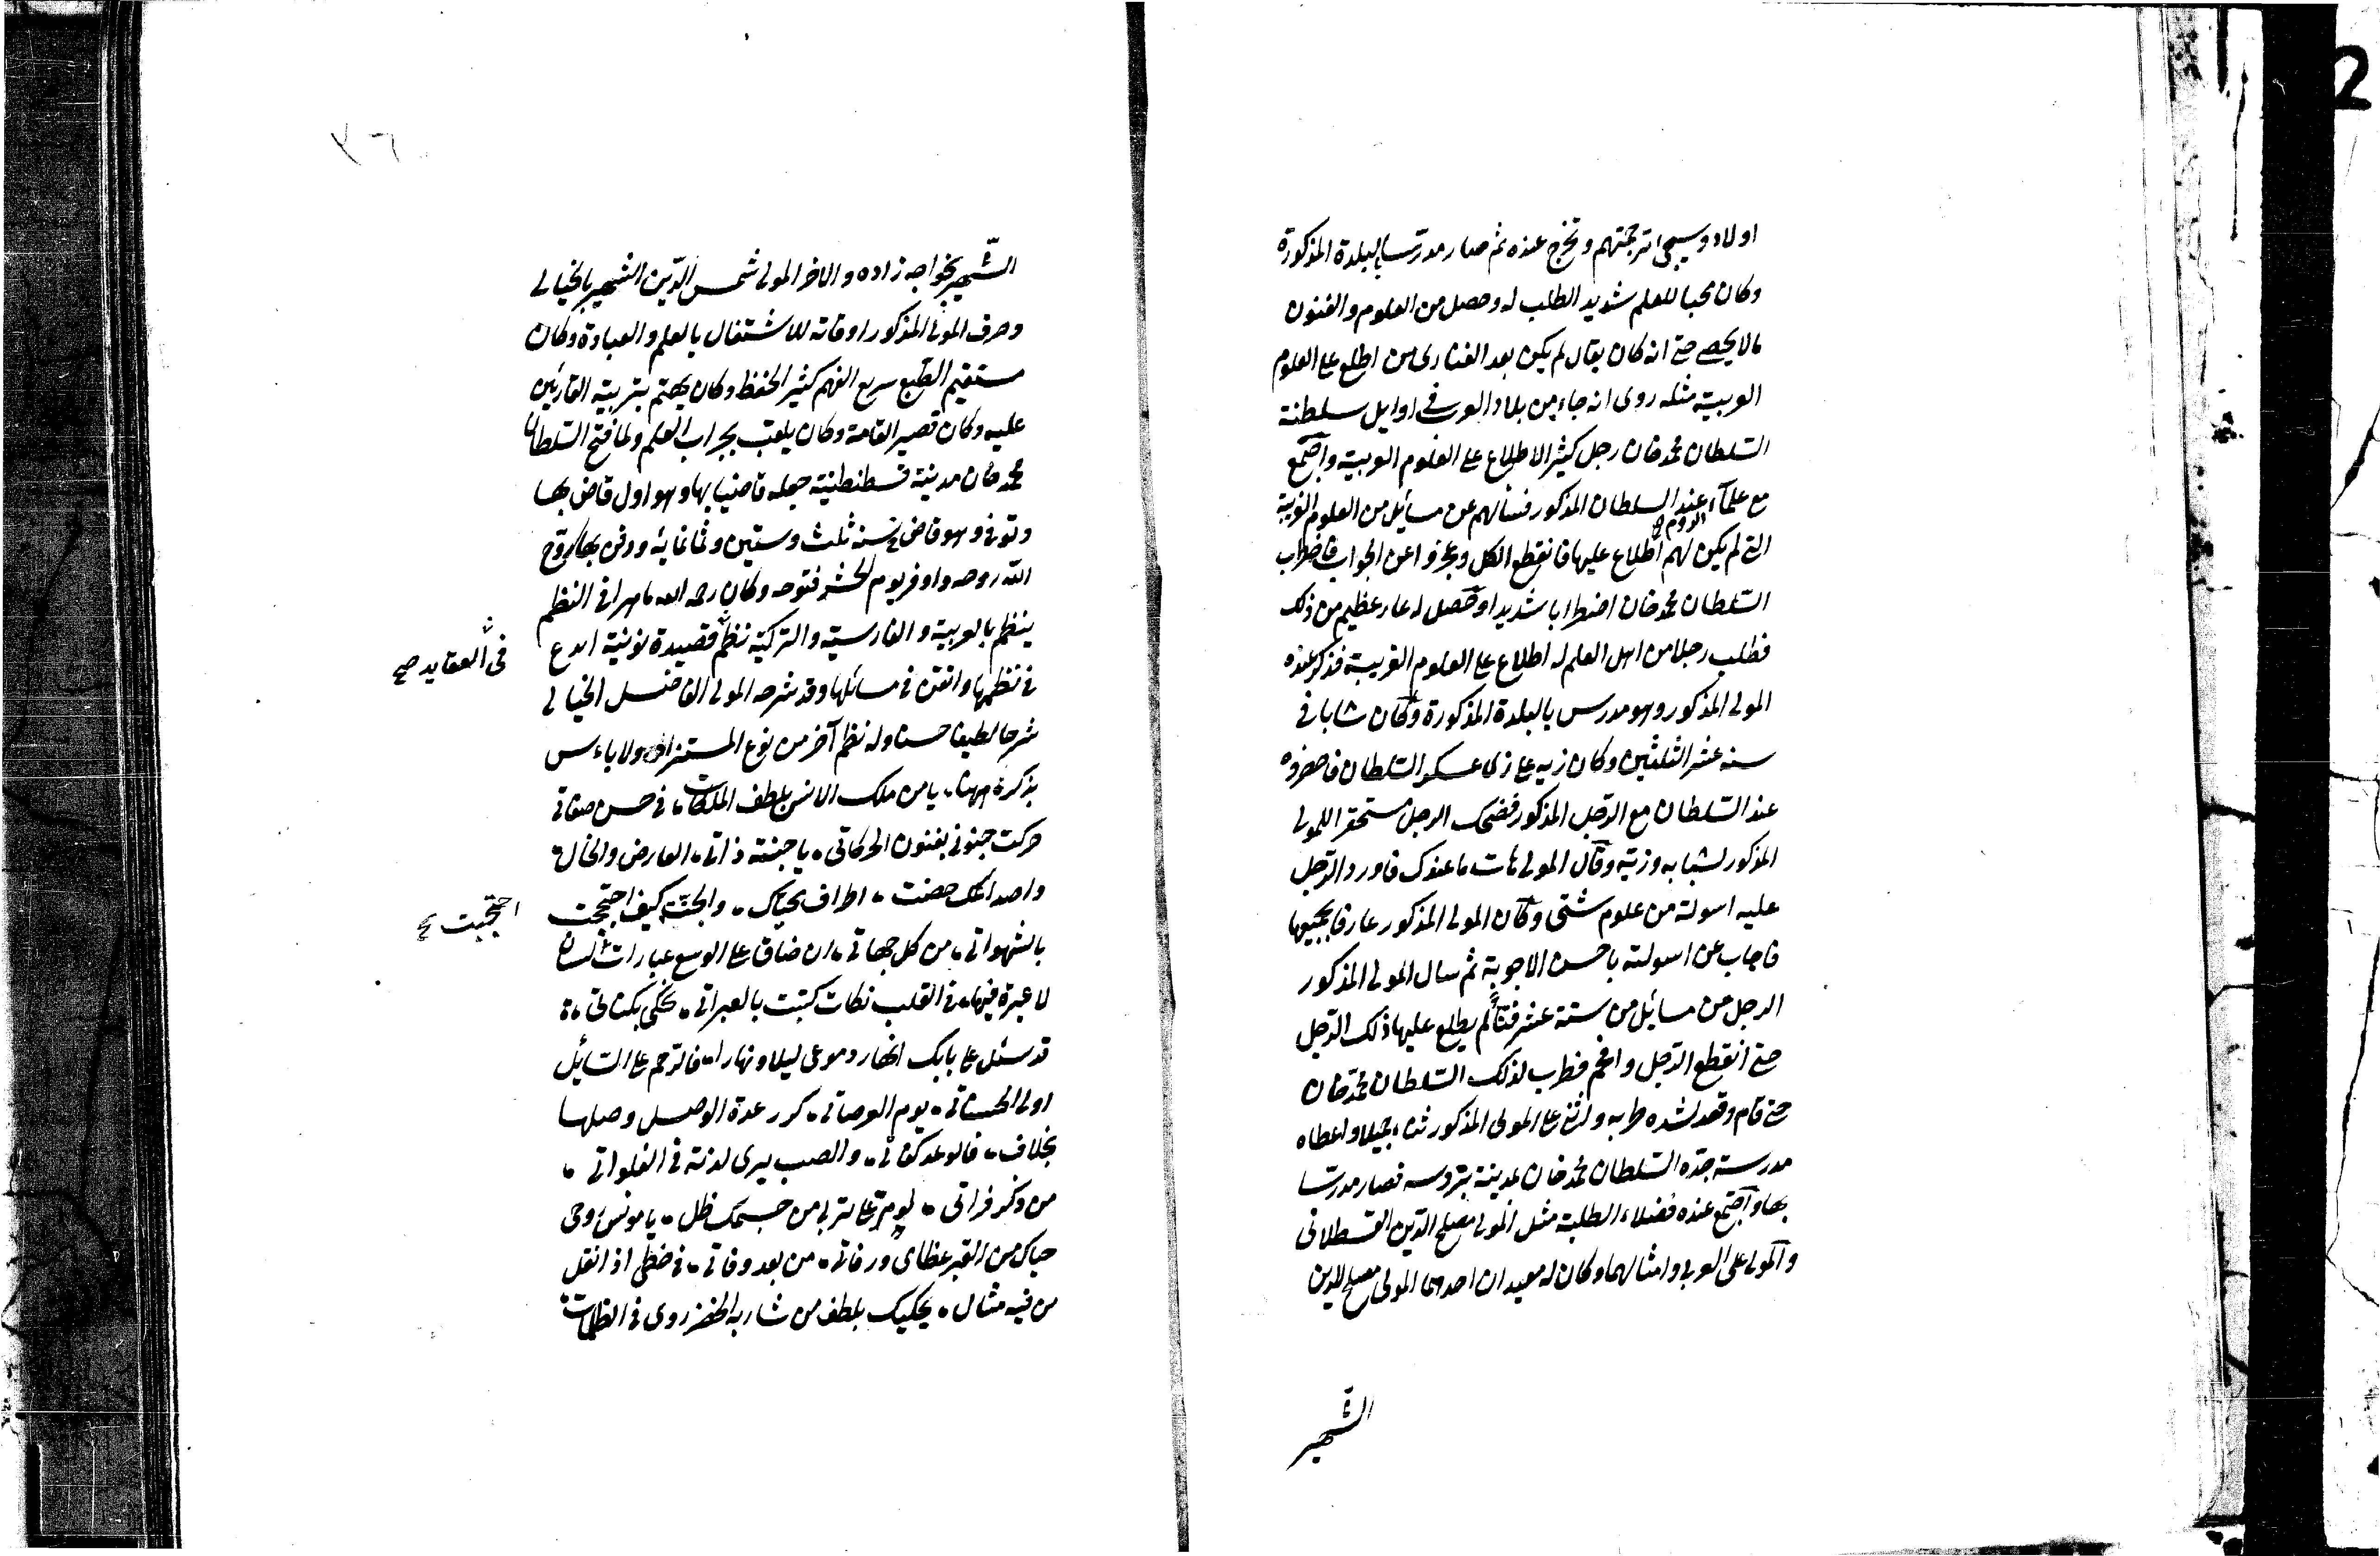 اولاد وسيجئ ترجمتهم وتخرج عنده ثم صار مدرسا بالبلدة المذكورة
وكان محبا للعلم شديد الطلب له وحصل من العلوم والفنون
مالا يحصى حتى انه كان يقال لم يكن بعد الفنارى من اطلع على العلوم
الغريبة مثله روى انه جاء من بلاد العرب فى اوايل سلطنة
السلطان محمد خان رجل كثير الاطلاع على العلوم الغريبة واجتمع
مع علماء الروم عند السلطان المذكور فسألهم عن مسائل من العلوم الغريبة
التى لم يكن لهم اطلاع عليها فانقطع الكل وعجزوا عن الجواب فاضطرب
السلطان محمد خان اضطرابا شديدا وحصل له عار عظيم من ذلك
فطلب رجلا من اهل العلم له اطلاع على العلوم الغريبة فذكر عنده
المولى المذكور وهو مدرس بالبلدة المذكورة وكان شابا فى
سنه عشر الثلثين وكان زيه على زى عسكر السلطان فاحضروه
عند السلطان مع الرجل المذكور فضحك الرجل مستحقرا للمولى
المذكور لشبابه وزيه وقال المولى هات ما عندك فاورد الرجل
عليه اسولة من علوم شتى وكان المولى المذكور عارفا بجميعها
فاجاب عن اسولته باحسن الاجوبة ثم سال المولى المذكور
الرجل من مسائل من ستة عشر فنا لم يطلع عليها ذلك الرجل
حتى انقطع الرجل وافحم فطرب لذلك السلطان محمد خان
حتى قام وقعد لشدة طربه واثنى على المولى المذكور ثناء جميلا واعطاه
مدرسة جده السلطان محمد خان بمدينة بروسه فصار مدرسا
بها واجتمع عنده فضلاء الطلبة مثل المولى مصلح الدين القسطلانى
والمولى على العربى وامثالهما وكان له معيدان احدهما المولى مصلح الدين
الشهير
٧٦
الشهير بخواجه زاده والاخر المولى شمس الدين الشهير بالخيالى
وصرف المولى المذكور اوقاته للاشتغال بالعلم والعبادة وكان
مستقيم الطبع سريع الفهم كثير الحفظ وكان يهتم بتربية القارئين
عليه وكان قصير القامة وكان يلقب بجراب العلم ولما فتح السلطان
محمد خان مدينة قسطنطنية جعله قاضيا بها وهو اول قاض بها
وتوفى وهو قاض فى سنة ثلث وستين وثمانمائة ودفن بها روح
الله روحه واوفر يوم الحشر فتوحه وكان رحمه الله ماهرا فى النظم
ينظم بالعربية والفارسية والتركية نظم قصيدة نونية ابدع
فى العقايد صح
فى نظمها واتقن فى مسائلها وقد شرحه المولى الفاضل الخيالى
شرحا لطيفا حسنا وله نظم آخر من نوع المستزاد ولا باءس
بذكره ههنا يا من ملك الانس بلطف الملكات فى حسن صفاتى
حركت جنونى بفنون الحركاتى يا جنة ذاتى العارض والخال
واصداغك حفت اطراف محياك والجنة كيف احتجت
احتجبت
بالشهواتى من كل جهاتى ان ضاق على الوسع عبارات لسان
لا عبرة فيها فى القلب نكات كتبت بالعبراتى تحكى بكناتى
قد سئل على بابك انهار دموعى ليلا ونهارا فالرحم على السائل
اولى الحسناتى يوم العرصاتى كرر عدة الوصل وصلها
بخلاف فالوعد كفاتى والصب يرى لذته فى الفلواتى
من ذكر فراتى لو مر على تربى من جسمك ظل يا مونس روحى
حياك من القبر عظامى ورفاتى من بعد وفاتى فى خطى اذ انقل
من فيه مثال يحكيك بلطف من شاربه الخضر روى فى الظلمات